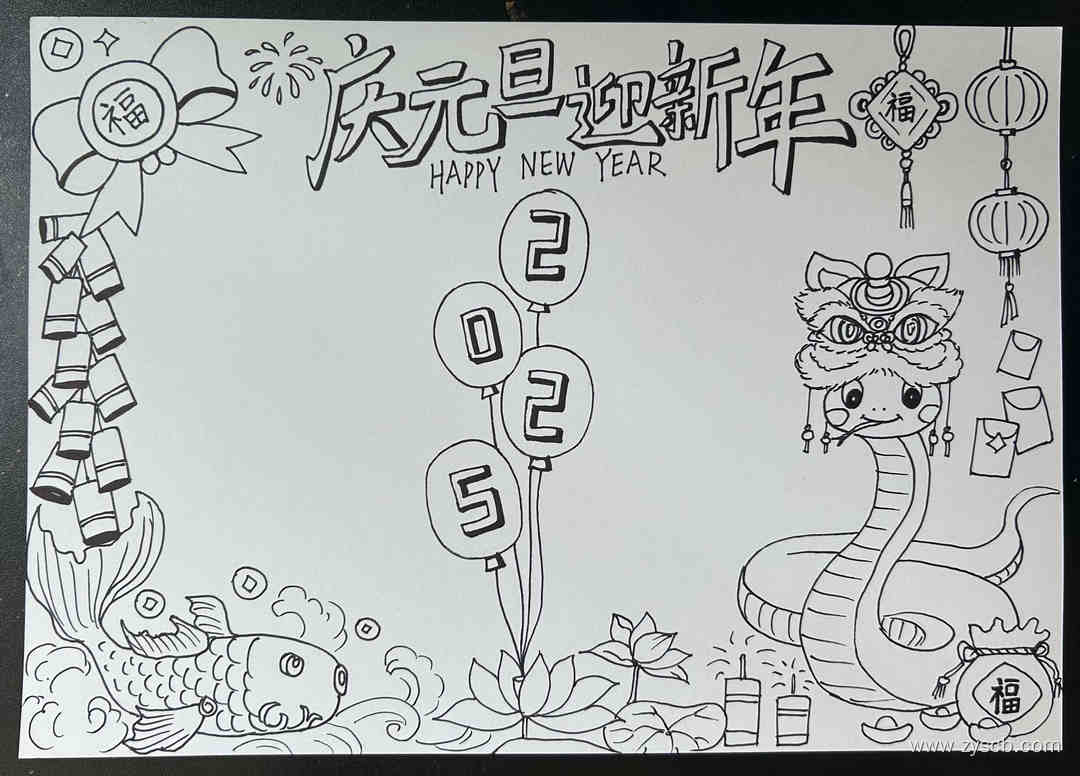 庆元旦迎新年
HAPPY NEW YEAR
福
福
2
0
2
5
福
www.zyscb.com